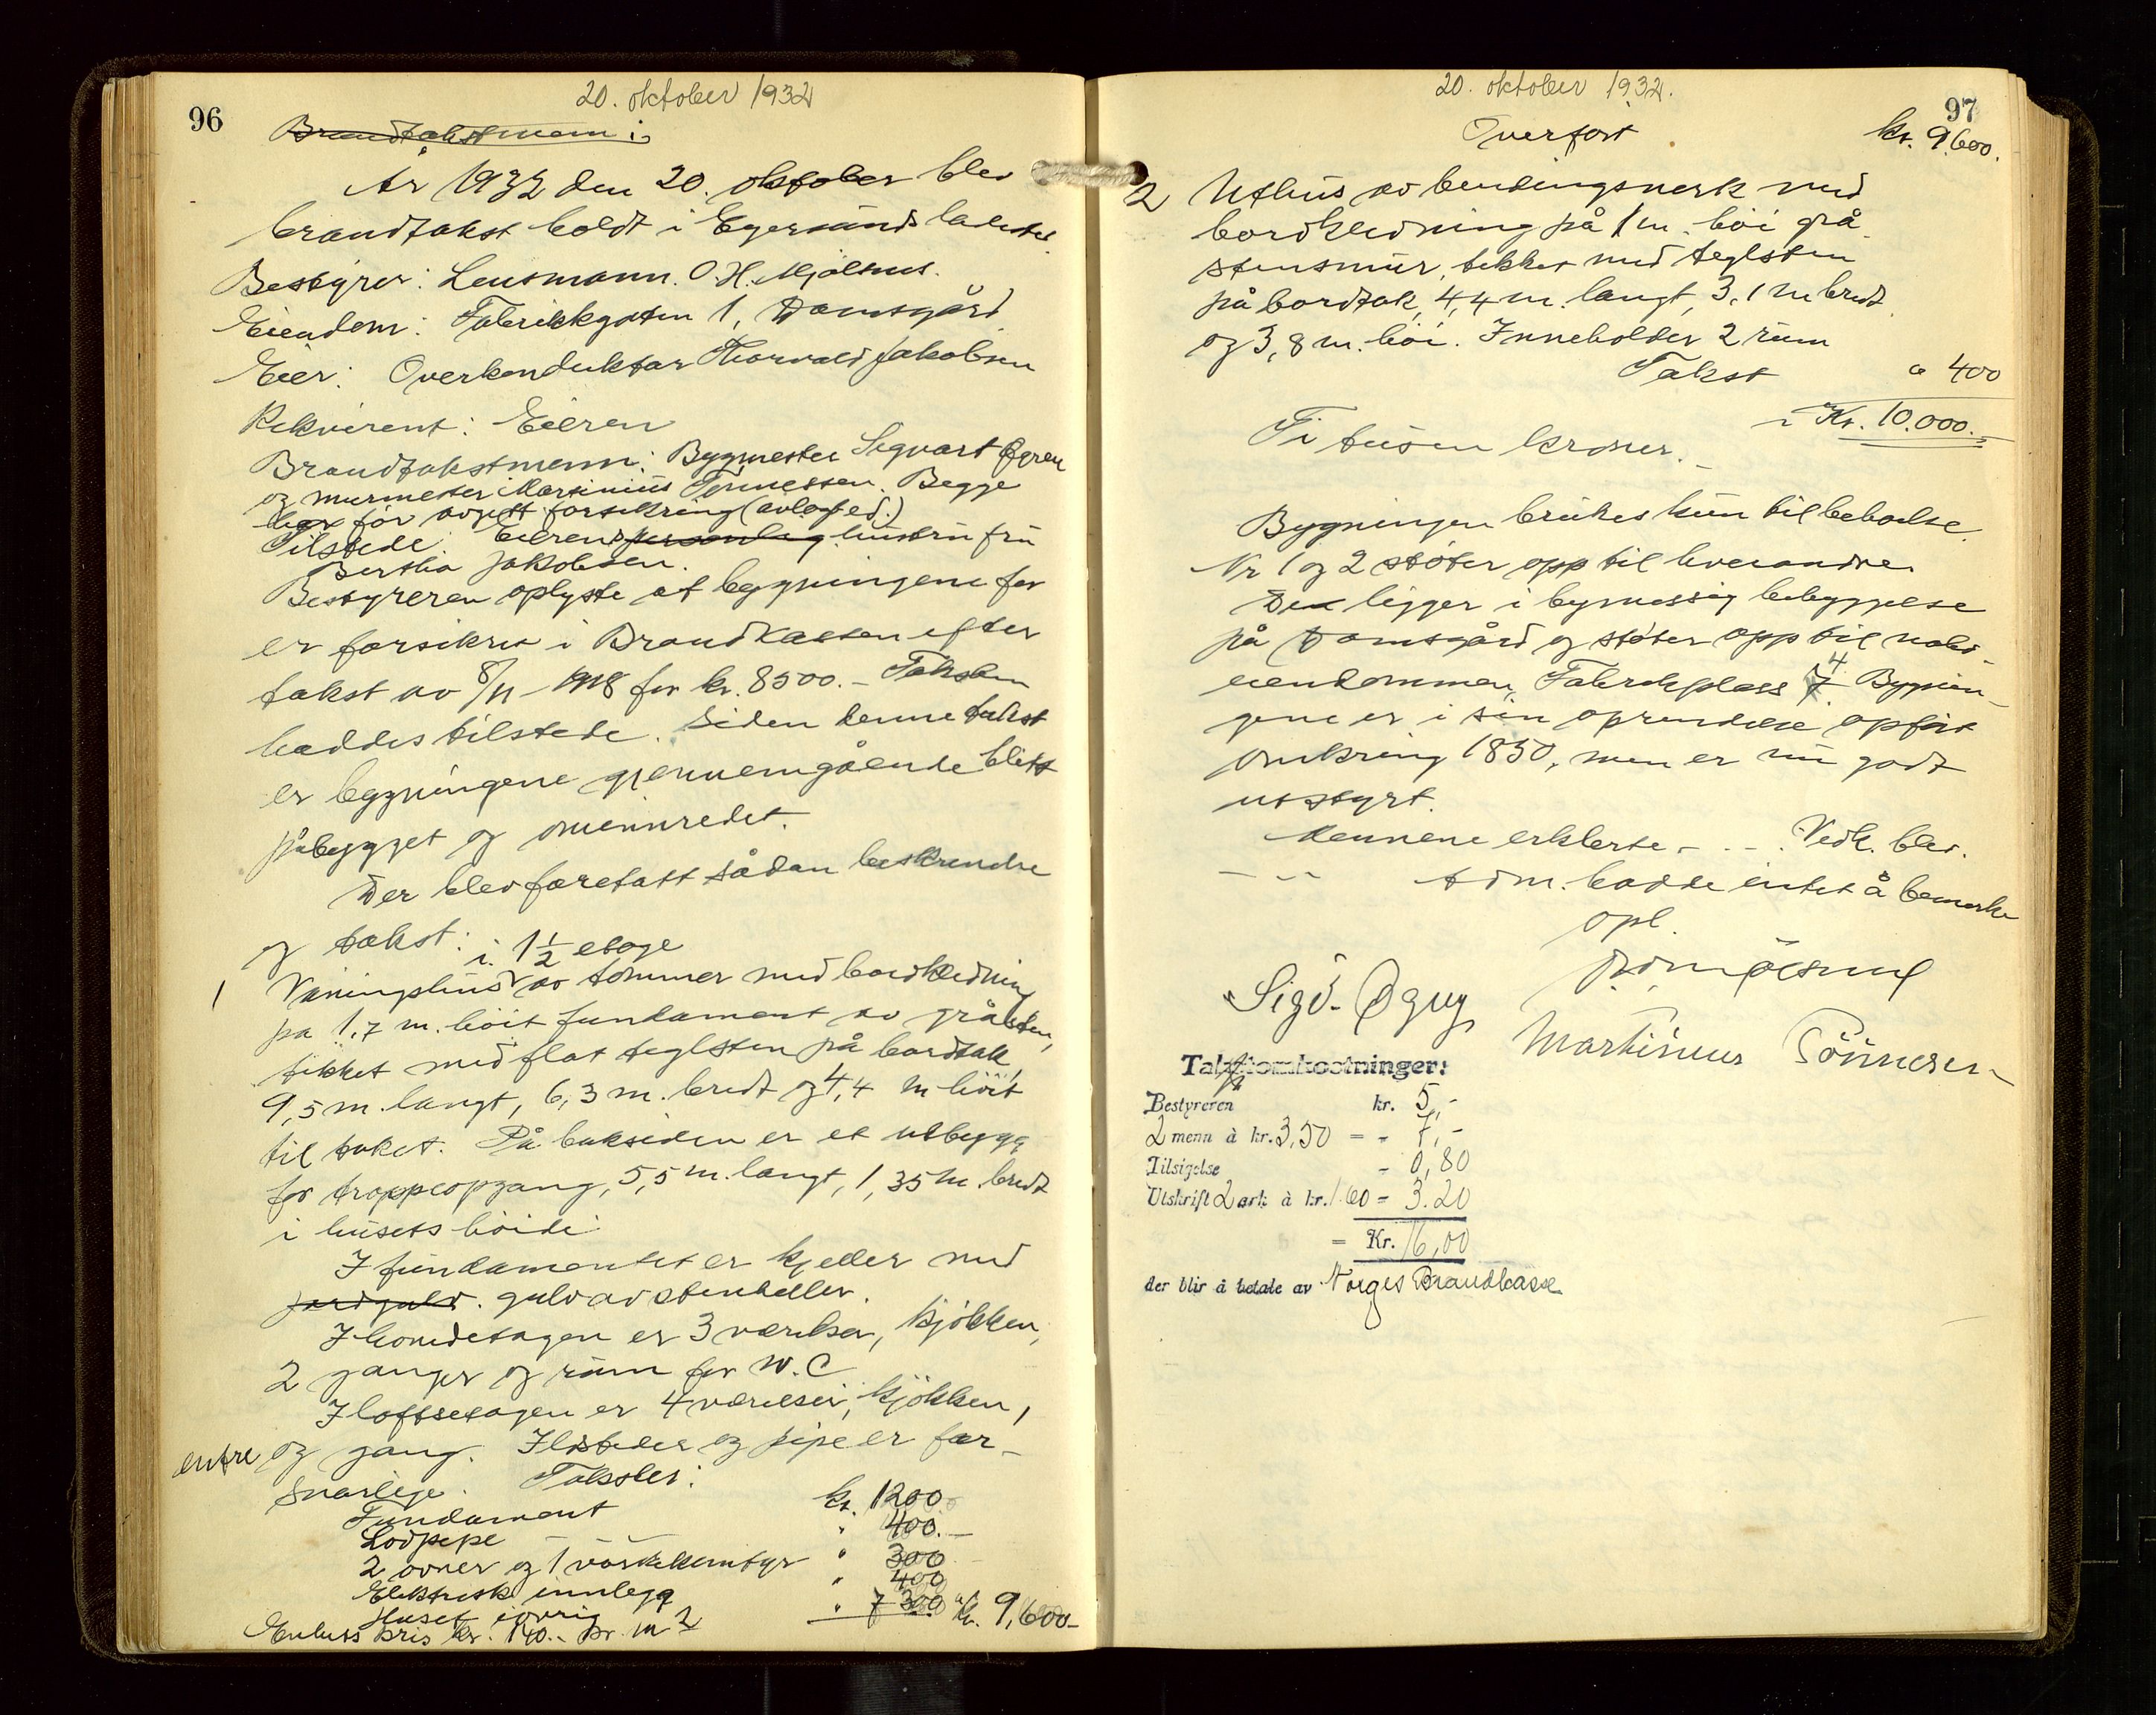 20. oktober 1932
96
Brandtakstmenn i
År 1932 den 20. oktober blev
brandtakst holdt i Egersunds ladested
Bestyrer: Lensmann O. H. Mjølsnes.
Eiendom: Fabrikkgaten 1, Damsgård
Eier: Overkonduktør Thorvald Jakobsen
Rekvirent: Eieren
Brandtakstmenn: Bygmester Sigvart Øgreu
og murmester Martinius Tønnessen. Begge
har før avgitt forsikring (avlagt ed.)
Tilstede: Eierens personlig hustru fru
Bertha Jakobsen.
Bestyreren oplyste at bygningene før
er forsikret i Brandkassen efter
takst av 8/11-1918 for kr. 8500.- Taksten
haddes tilstede. Siden denne takst
er bygningene gjennemgående blitt
påbygget og ominnredet.
Der blev foretatt sådan beskrivelse
og takst:
i 1½ etage
1 Våningshus av tømmer med bordkledning
på 1,7 m. höit fundament av gråsten,
tekket med flat teglsten på bordtak,
9,5 m. langt, 6,3 m. bredt og 4,4 m höit
til taket. På baksiden er et utbygg
for trappeopgang, 5,5 m. langt, 1,35 m. bredt
i husets höide.
I fundamentet er kjeller med
jordgulv. gulv av stenheller.
I hovedetagen er 3 værelser, kjökken,
2 ganger og rum for W.C
I loftsetagen er 4 værelser, kjökken,
entre og gang. Ildsteder og pipe er for-
svarlige. Takster:
Fundament kr. 1200.-
Lodpipe " 400.-
2 ovner og 1 vaskekomfyr " 300
Elektrisk innlegg " 400
Huset iøvrig " 7 300 kr. 9,600-
Enhets pris kr. 140.- pr. m2
20. oktober 1932.
97
Overført kr. 9.600.
2 Uthus av bendingsverk med
bordkledning på 1 m. höi grå-
stensmur, tekket med teglsten
på bordtak, 4,4 m. langt, 3,1 m bredt
og 3,8 m. höi. Inneholder 2 rum
Takst " 400
Kr. 10.000.-
Ti tusen kroner.-
Bygningen brukes kun til beboelse.
Nr 1 og 2 støter opp til hverandre.
De ligger i bymessig bebyggelse
på Damsgård og støter opp til nabo-
eiendommen, Fabrikplass 7 4 Bygnin-
gene er i sin oprindelse opført
omkring 1850, men er nu godt
utstyrt.
Mennene erklærte - . - . Vedk. blev.
- - - t d m. hadde intet å bemerke
opl.
Sigv. Øgreu
Martinius Tönnesen
Takstomkostninger:
Bestyreren kr. 5,-
2 menn à kr. 3,50 = - 7,-
Tilsigelse - 0,80
Utskrift 2 ark à kr. 1.60 = 3.20
= Kr. 16,00
der blir å betale av Norges Brandkasse